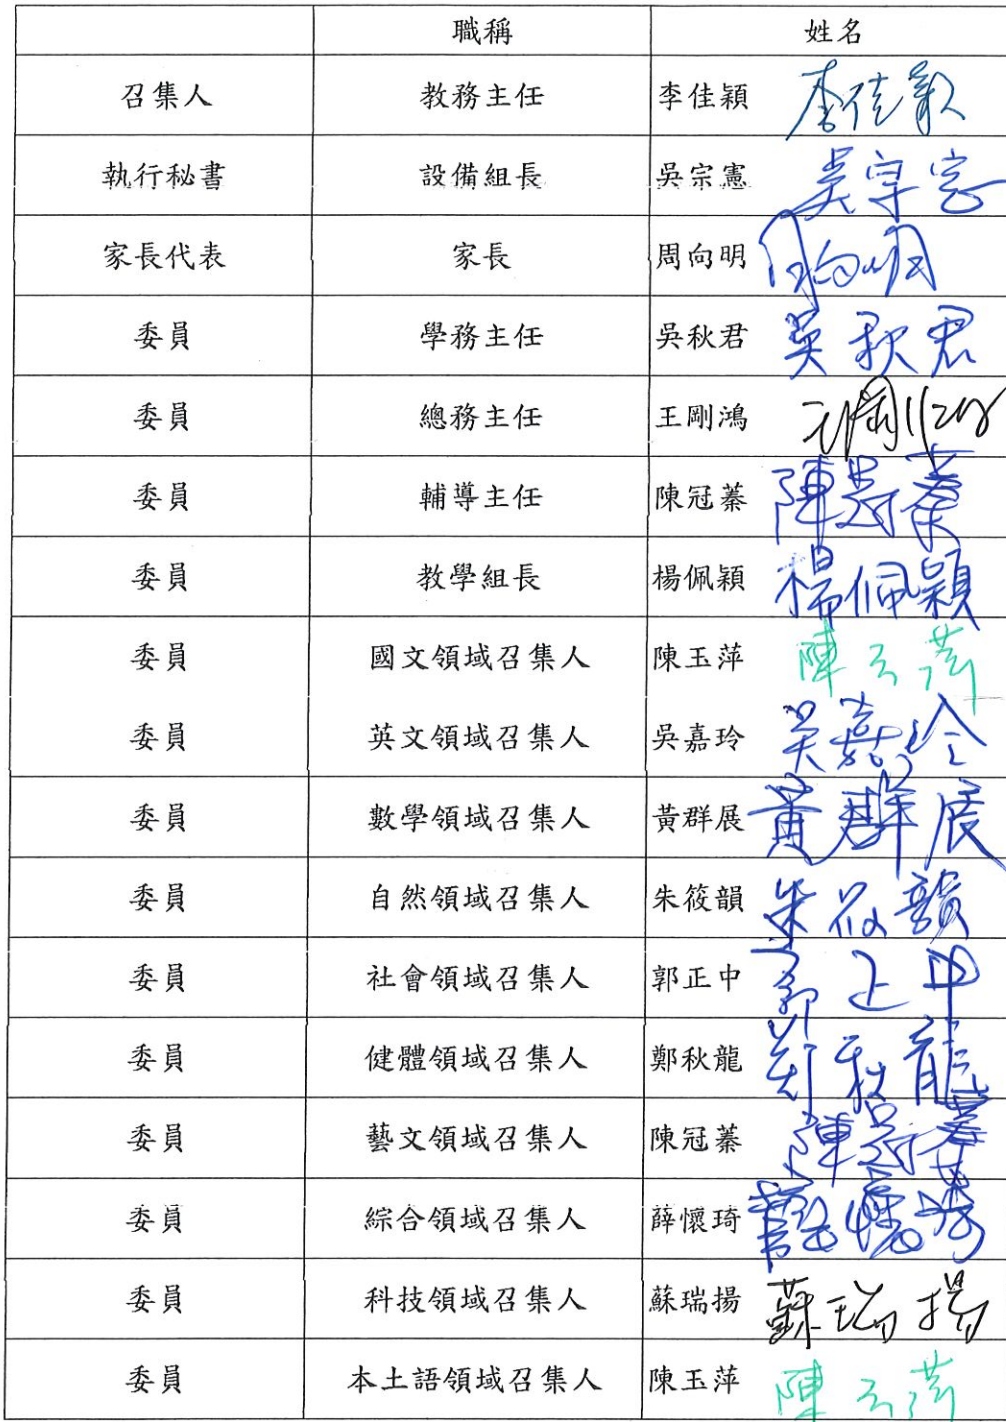 職稱 姓名
召集人 教務主任 李佳穎 李佳穎
執行秘書 設備組長 吳宗憲 吳宗憲
家長代表 家長 周向明 周向明
委員 學務主任 吳秋君 吳秋君
委員 總務主任 王剛鴻 王剛鴻
委員 輔導主任 陳冠蓁 陳冠蓁
委員 教學組長 楊佩穎 楊佩穎
委員 國文領域召集人 陳玉萍 陳玉萍
委員 英文領域召集人 吳嘉玲 吳嘉玲
委員 數學領域召集人 黃群展 黃群展
委員 自然領域召集人 朱筱韻 朱筱韻
委員 社會領域召集人 郭正中 郭正中
委員 健體領域召集人 鄭秋龍 鄭秋龍
委員 藝文領域召集人 陳冠蓁 陳冠蓁
委員 綜合領域召集人 薛懷琦 薛懷琦
委員 科技領域召集人 蘇瑞揚 蘇瑞揚
委員 本土語領域召集人 陳玉萍 陳玉萍